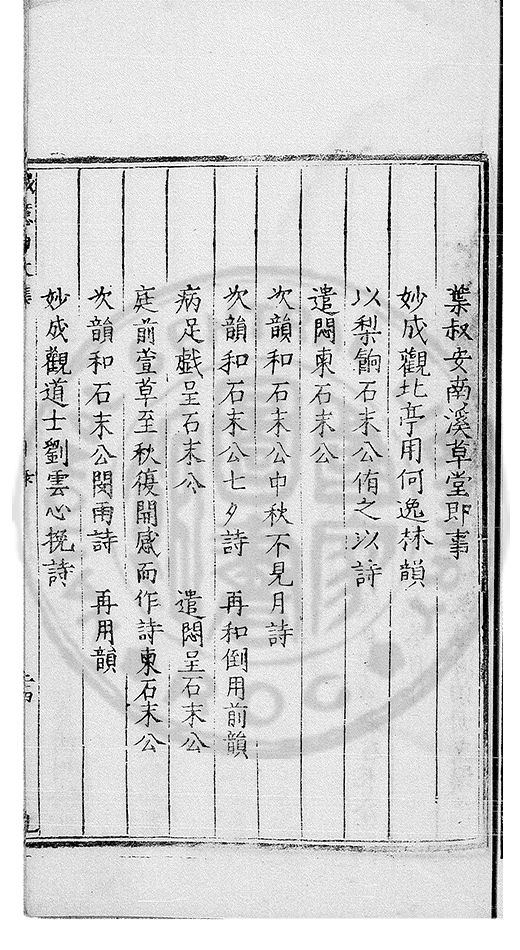 葉叔安南溪草堂即事
妙成觀北亭用何逸林韻
以梨餉石末公侑之以詩
遣悶柬石末公
次韻和石末公中秋不見月詩
次韻和石末公七夕詩　再和倒用前韻
病足戲呈石末公　遣悶呈石末公
庭前萱草至秋復開感而作詩柬石末公
次韻和石末公閔雨詩　再用韻
妙成觀道士劉雲心挽詩